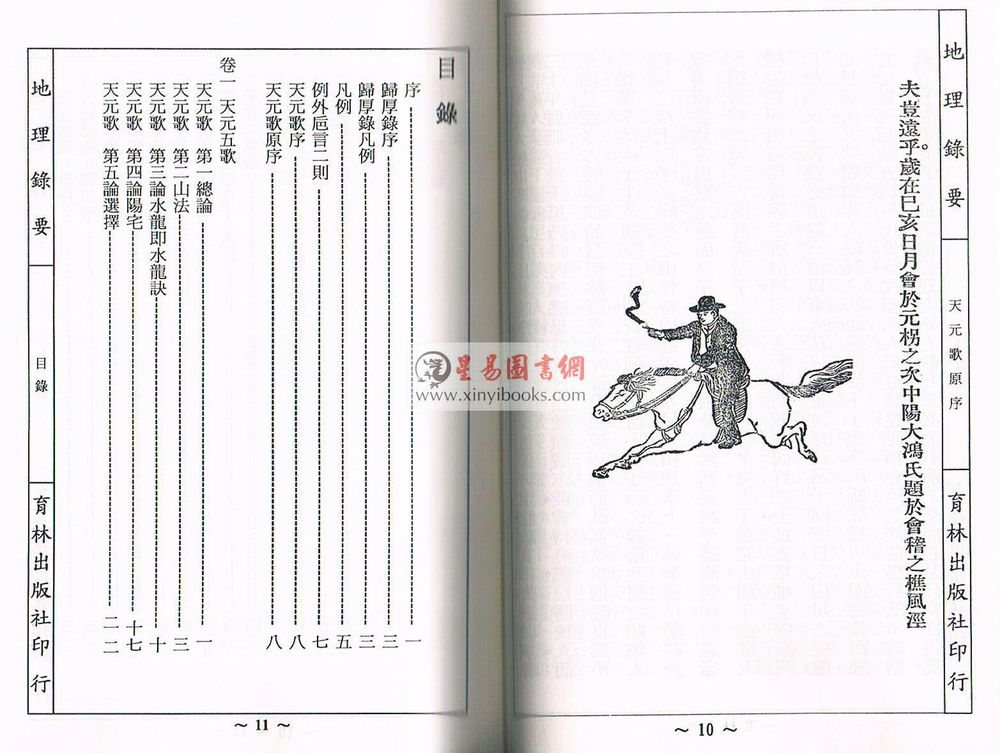 地理錄要
天元歌原序
育林出版社印行
夫豈遠乎。歲在巳亥日月會於元枴之次中陽大鴻氏題於會稽之樵風涇
~ 10 ~
目錄
序 一
歸厚錄序 三
歸厚錄凡例 三
凡例 五
例外巵言二則 七
天元歌序 八
天元歌原序 八
卷一 天元五歌
天元歌 第一總論 一
天元歌 第二山法 三
天元歌 第三論水龍即水龍訣 十
天元歌 第四論陽宅 十七
天元歌 第五論選擇 二二
地理錄要
目錄
育林出版社印行
~ 11 ~
星易圖書網
www.xinyibooks.com